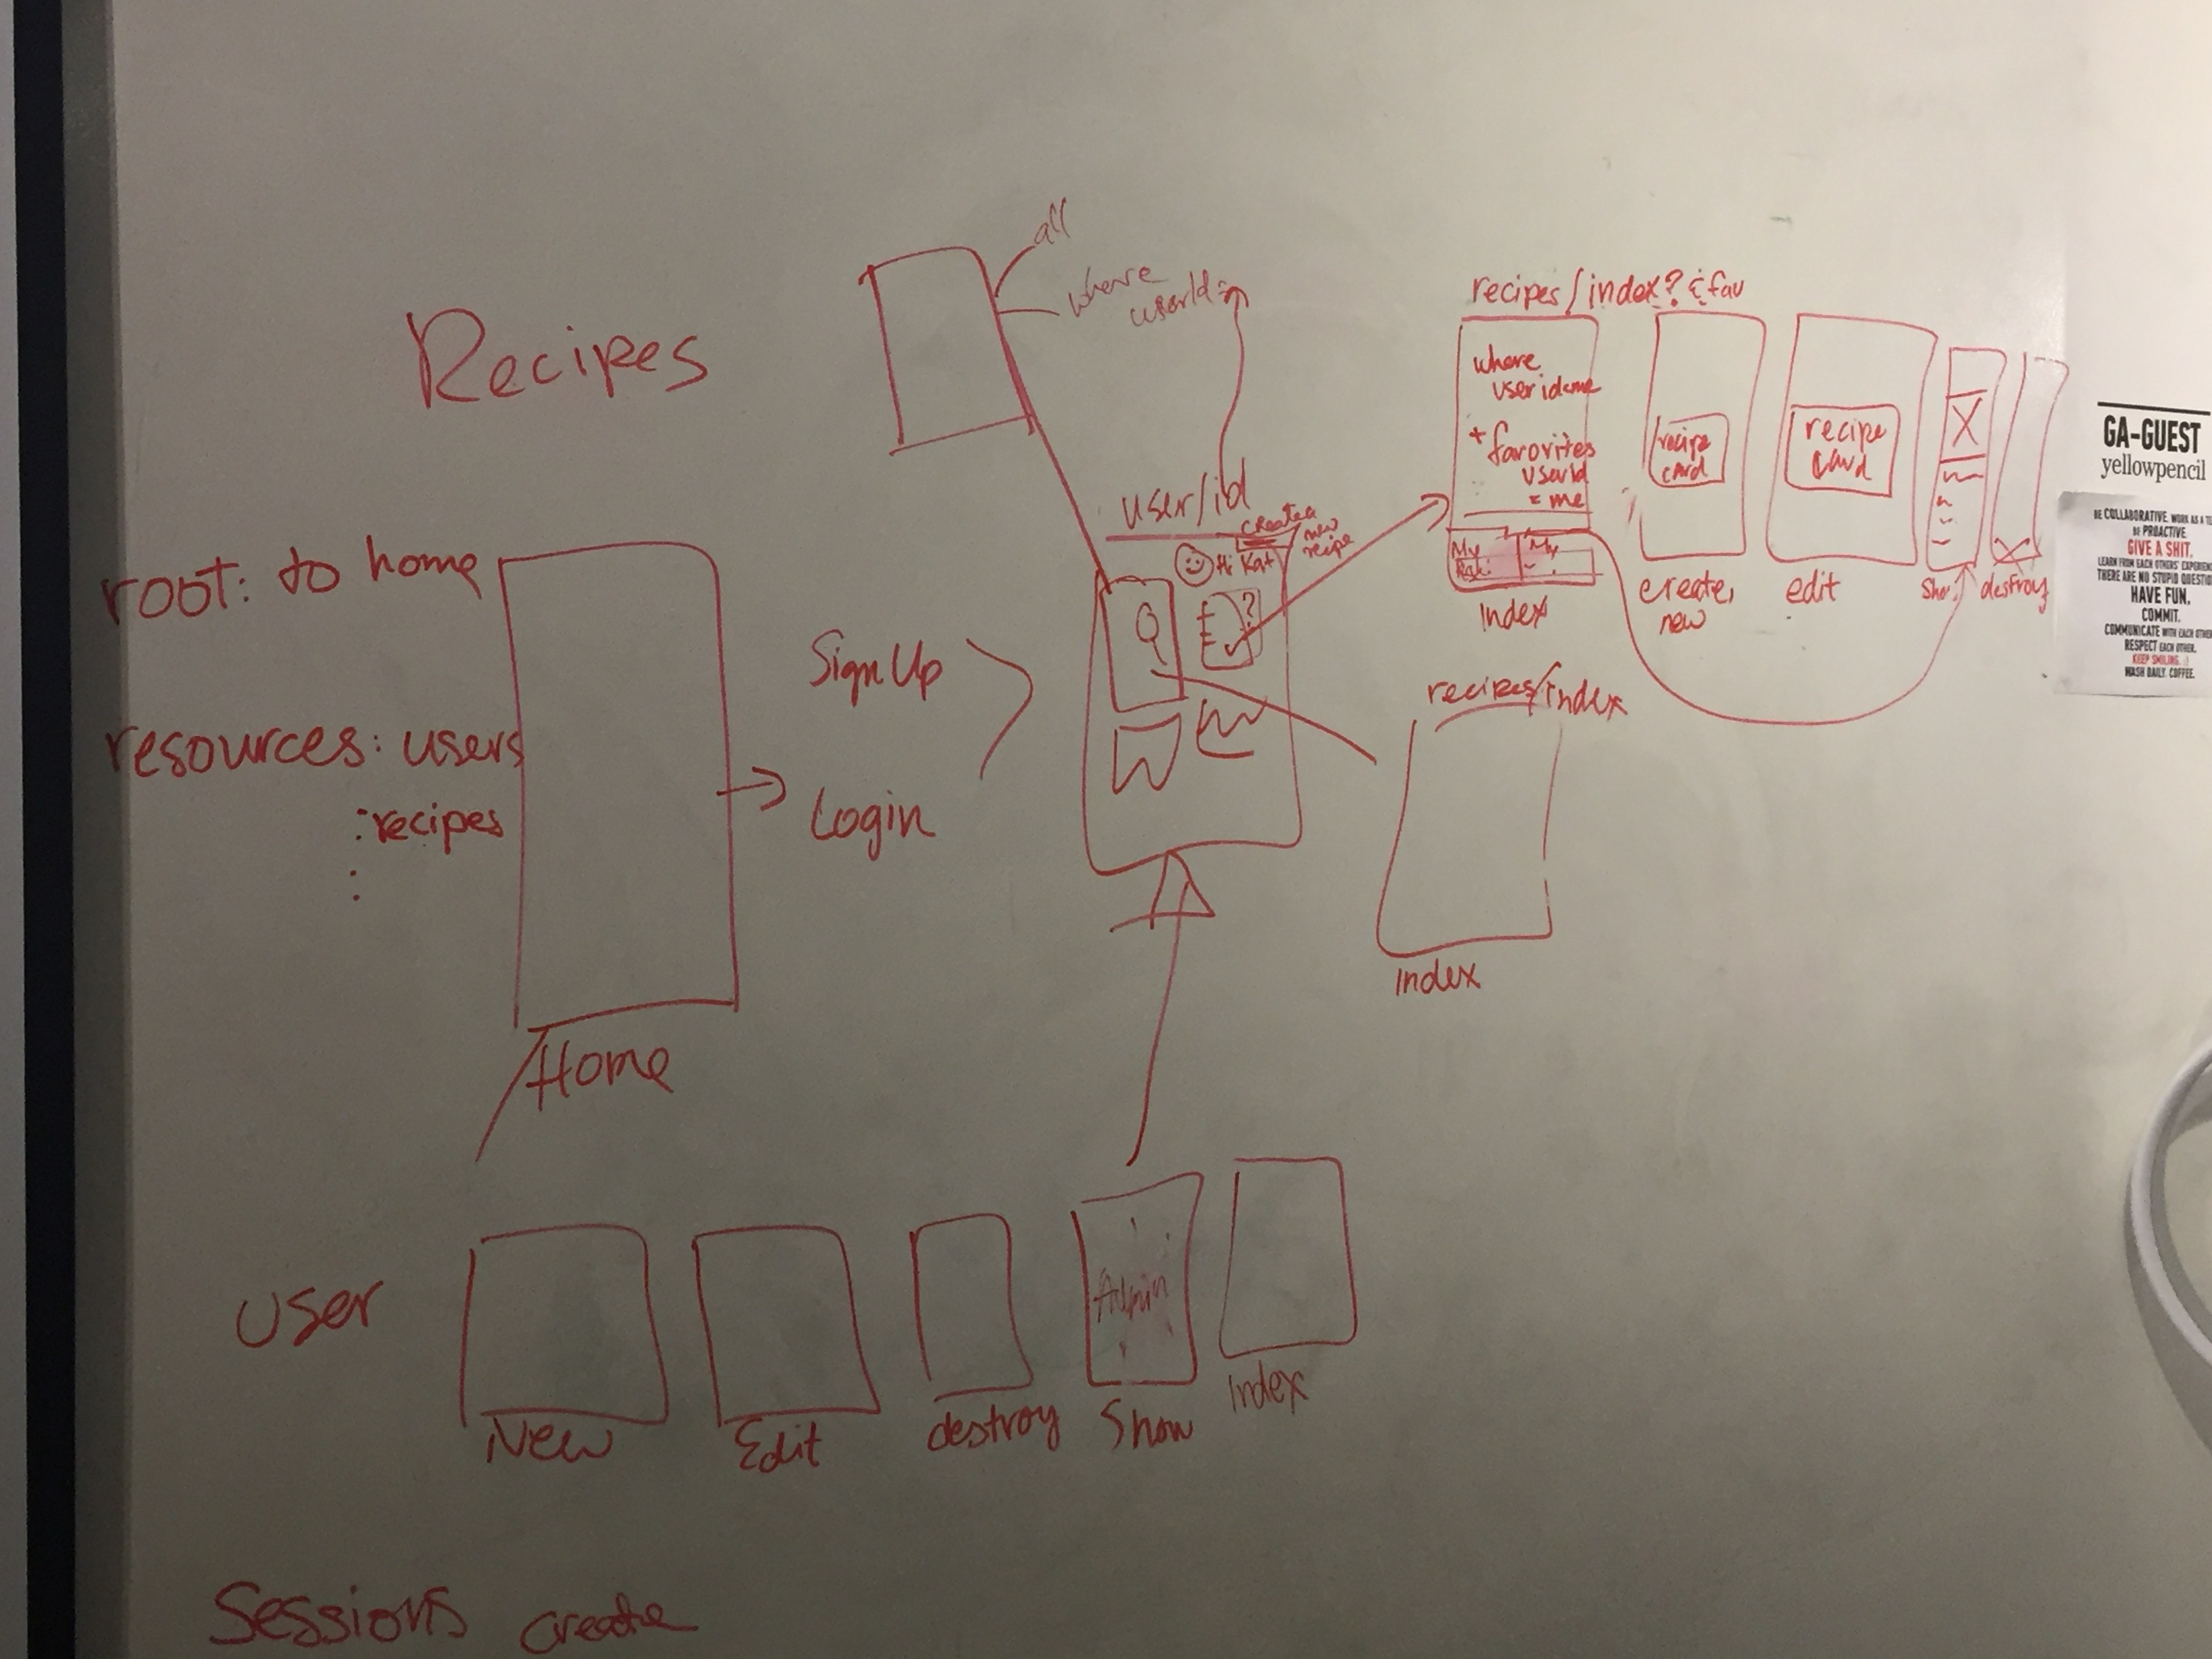 Recipes
all
where
userId=
root: to home
resources: users
:recipes
Home
Sign Up
Login
user/id
create a
new
recipe
Hi Kat
?
recipes/index? & fav
where
user id=me
+ favorites
userId
= me
My
My
Index
recipe
card
create,
new
recipe
card
edit
destroy
recipes/index
Index
user
New
Edit
destroy
Admin
Show
Index
Sessions create
GA-GUEST
yellowpencil
BE COLLABORATIVE. WORK AS A
BE PROACTIVE.
GIVE A SHIT.
LEARN FROM EACH OTHERS' EXPERIENC
THERE ARE NO STUPID QUESTIO
HAVE FUN.
COMMIT.
COMMUNICATE WITH EACH OTHE
RESPECT EACH OTHER.
KEEP SMILING. :)
WASH DAILY. COFFEE.